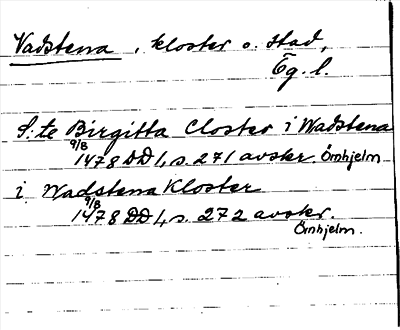 Vadstena, kloster o. stad,
Ög. l.
S:te Birgitta Closter i Wadstena
9/8 1478 DD 1, s. 271 avskr. Örnhjelm
i Wadstena Kloster
9/8 1478 DD 1, s. 272 avskr.
Örnhjelm.